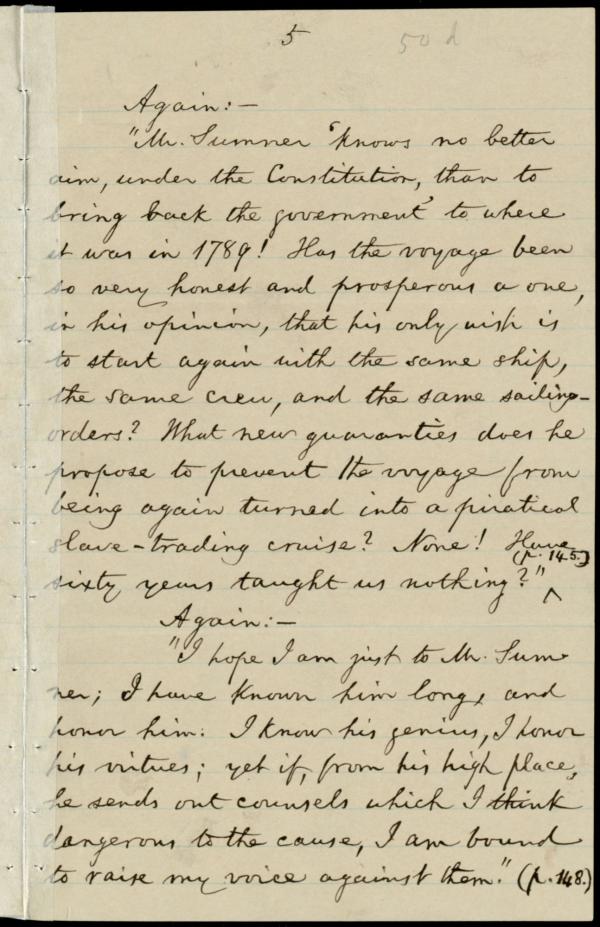 5
50 d
Again:—
"Mr. Sumner 'knows no better
aim, under the Constitution, than to
bring back the government' to where
it was in 1789! Has the voyage been
so very honest and prosperous a one,
in his opinion, that his only wish is
to start again with the same ship,
the same crew, and the same sailing-
orders? What new guaranties does he
propose to prevent the voyage from
being again turned into a piratical
slave-trading cruise? None! Have
(p. 145.)
sixty years taught us nothing?" ^
Again:—
"I hope I am just to Mr. Sum-
ner; I have known him long, and
honor him. I know his genius, I honor
his virtues; yet if, from his high place,
he sends out counsels which I think
dangerous to the cause, I am bound
to raise my voice against them." (p. 148.)